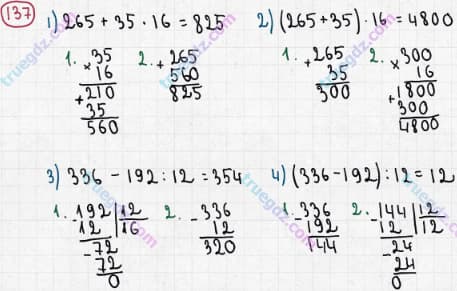 137
1) 265 + 35 · 16 = 825
1. 35
× 16
+ 210
35
560
2. + 265
560
825
2) (265+35) · 16 = 4800
1. + 265
35
300
2. × 300
16
+ 1800
300
4800
3) 336 - 192 : 12 = 354
1. 192 | 12
12 | 16
- 72
72
0
2. - 336
12
320
4) (336-192) : 12 = 12
1. - 336
192
144
2. - 144 | 12
12 | 12
- 24
24
0
truegdz.com
truegdz.com
truegdz.com
truegdz.com